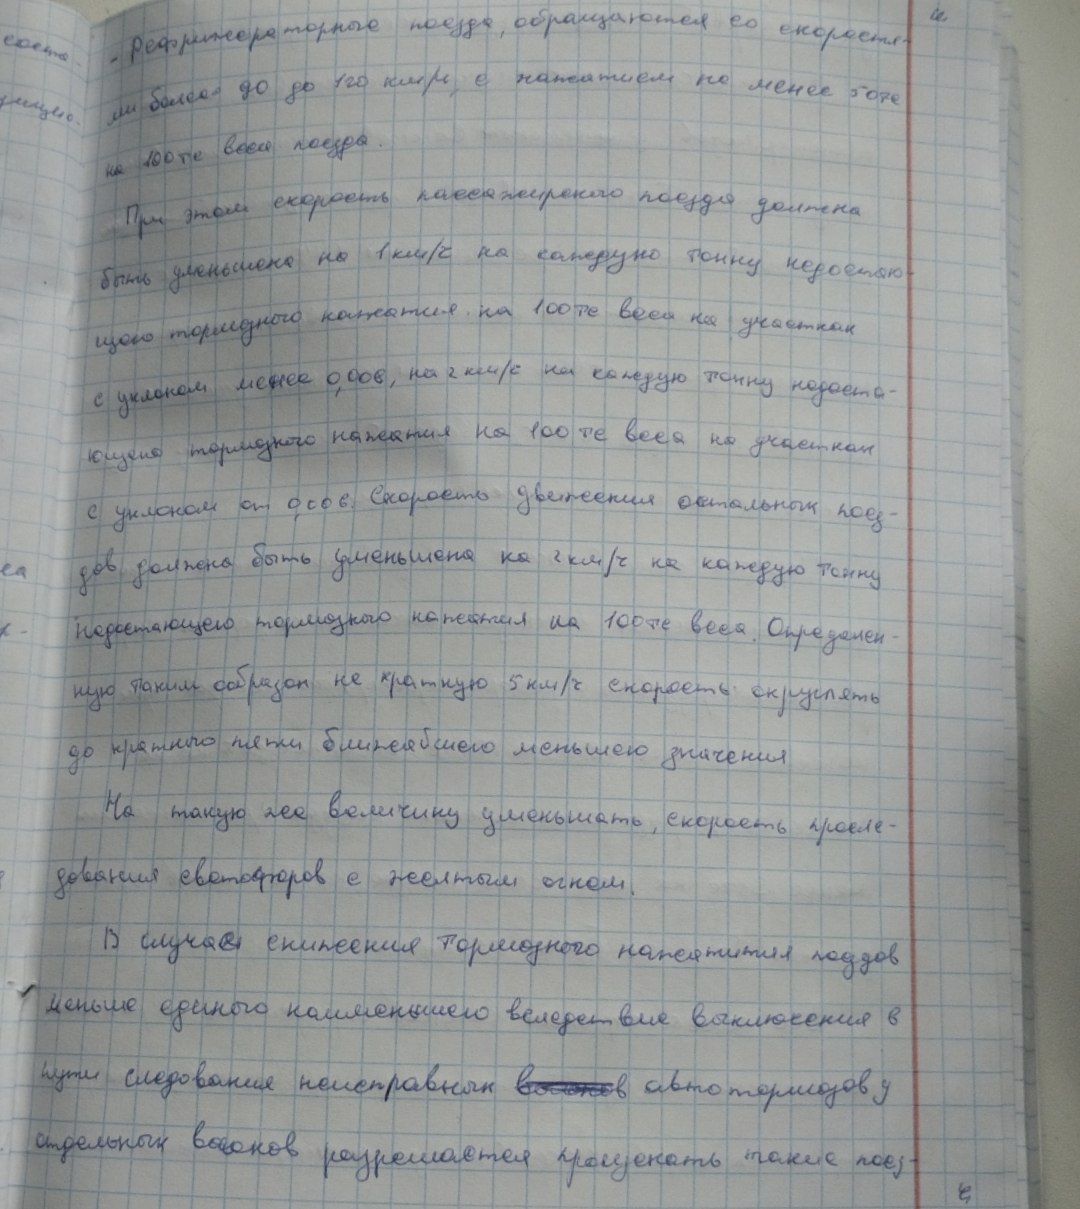 - Рефрижераторные поезда, обращаются со скоростя-
ми более 90 до 120 км/ч, с нажатием не менее 50тс
на 100тс веса поезда.
При этом скорость пассажирского поезда должна
быть уменьшена на 1км/ч на каждую тонну недостаю-
щего тормозного нажатия на 100тс веса на участках
с уклоном менее 0,006, на 2км/ч на каждую тонну недоста-
ющего тормозного нажатия на 100тс веса на участках
с уклоном от 0,006. Скорость движения остальных поез-
дов должена быть уменьшена на 2км/ч на каждую тонну
недостающего тормозного нажатия на 100тс веса. Определен-
ную таким образом не кратную 5км/ч скорость округлять
до кратного пяти ближайшего меньшего значения
На такую же величину уменьшать, скорость просле-
дования светофоров с желтым огнем.
В случае снижения тормозного поездов
меньше единого наименьшего вследствие выключения в
пути следования неисправных автотормозов у
отдельных вагонов разрешается пропускать такие поез-